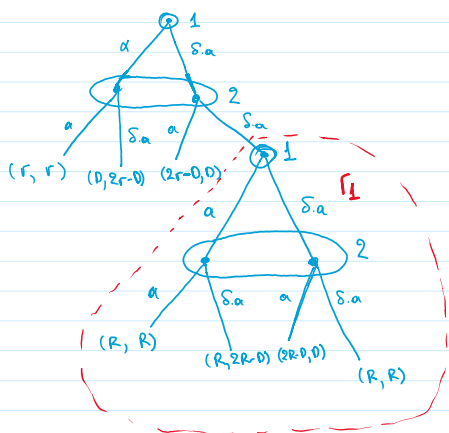 1
α δ.a
2
a δ.a a δ.a
(r, r) (D, 2r-D) (2r-D, D) 1
Γ1
a δ.a
2
a δ.a a δ.a
(R, R) (R, 2R-D) (2R-D, D) (R, R)